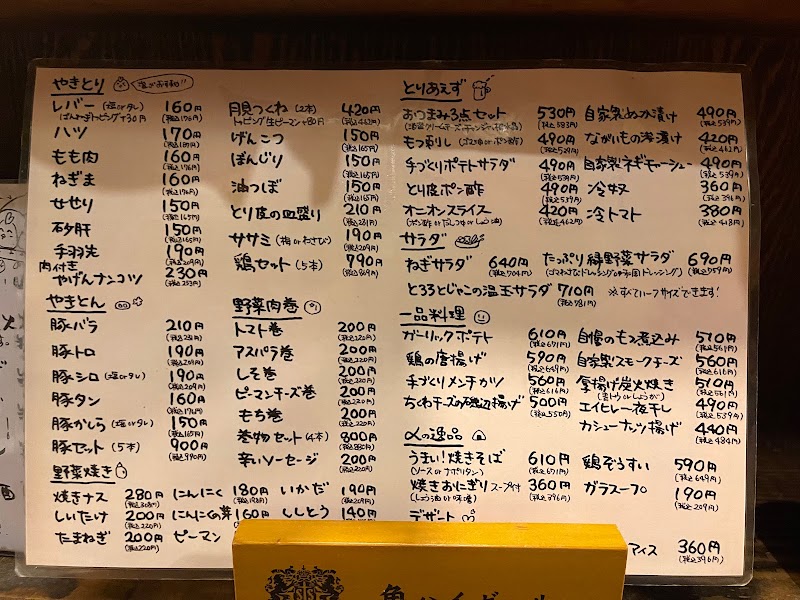 やきとり
塩がおすすめ!!
レバー (塩orタレ) 160円
(税込176円)
ハツ 170円
もも肉 160円
(税込176円)
ねぎま 160円
(税込176円)
せせり 150円
(税込165円)
砂肝 150円
(税込165円)
手羽先 190円
(税込209円)
肉付き
やげんナンコツ 230円
(税込253円)
やきとん
豚バラ 210円
(税込231円)
豚トロ 190円
(税込209円)
豚シロ (塩orタレ) 190円
(税込209円)
豚タン 160円
(税込176円)
豚かしら (塩orタレ) 150円
(税込165円)
豚セット (5本) 900円
(税込990円)
野菜焼き
焼きナス 280円
(税込308円)
しいたけ 200円
(税込220円)
たまねぎ 200円
(税込220円)
にんにく 180円
にんにくの芽 160円
ピーマン
いかだ 190円
(税込209円)
ししとう 190円
月見つくね (2本) 420円
トッピング生ピーマン+80円 (税込462円)
げんこつ 150円
(税込165円)
ぼんじり 150円
(税込165円)
油つぼ 150円
(税込165円)
とり皮の皿盛り 210円
(税込231円)
ササミ (梅orわさび) 190円
(税込209円)
鶏セット (5本) 790円
(税込869円)
野菜肉巻
トマト巻 200円
(税込220円)
アスパラ巻 200円
(税込220円)
しそ巻 200円
(税込220円)
ピーマンチーズ巻 200円
(税込220円)
もち巻 200円
(税込220円)
巻物セット (4本) 800円
(税込880円)
辛いソーセージ 200円
(税込220円)
とりあえず
おつまみ3点セット 530円
(税込583円)
もつ刺し (ゴマ油orポン酢) 490円
(税込539円)
手づくりポテトサラダ 490円
(税込539円)
とり皮ポン酢 490円
(税込539円)
オニオンスライス 420円
(税込462円)
自家製ぬか漬け 490円
(税込539円)
ながいもの浅漬け 420円
(税込462円)
自家製ネギモーション 490円
(税込539円)
冷奴 360円
(税込396円)
冷トマト 380円
(税込418円)
サラダ
ねぎサラダ 640円
(税込704円)
たっぷり緑野菜サラダ 690円
(税込759円)
とろろとじゃこの温玉サラダ 710円
(税込781円)
※すべてハーフサイズできます!
一品料理
ガーリックポテト 610円
(税込671円)
鶏の唐揚げ 590円
(税込649円)
手づくりメンチカツ 560円
(税込616円)
ちくわチーズの磯辺揚げ 500円
(税込550円)
自慢のもつ煮込み 510円
(税込561円)
自家製スモークチーズ 560円
(税込616円)
厚揚げ炭火焼き 510円
(税込561円)
エイヒレ一夜干し 490円
(税込539円)
カシューナッツ揚げ 440円
(税込484円)
〆の逸品
うまい!焼きそば 610円
(ソースorナポリタン) (税込671円)
焼きおにぎり スープ付 360円
(しょう油or味噌) (税込396円)
鶏ぞうすい 590円
(税込649円)
ガラスープ 190円
(税込209円)
デザート
アイス 360円
(税込396円)